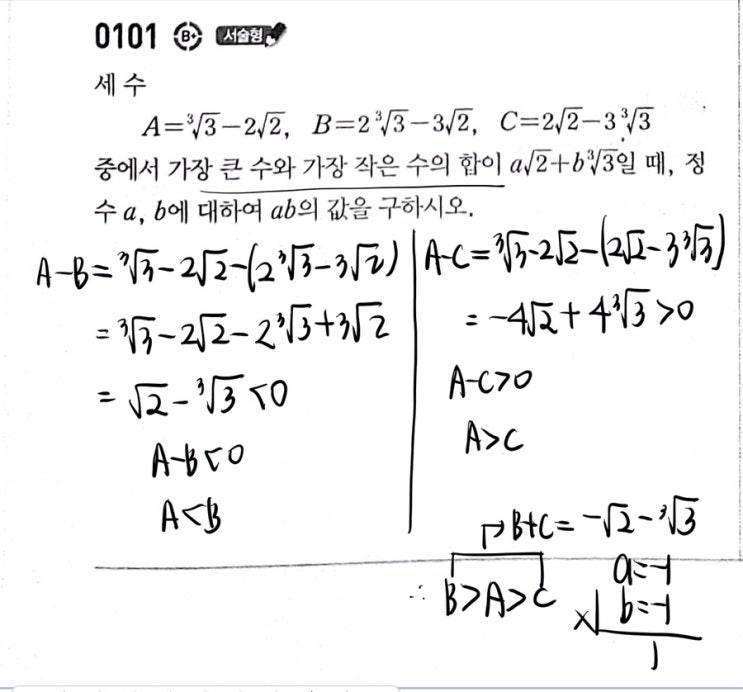 0101 B+ 서술형
세 수
A=∛3−2√2, B=2∛3−3√2, C=2√2−3∛3
중에서 가장 큰 수와 가장 작은 수의 합이 a√2+b∛3일 때, 정
수 a, b에 대하여 ab의 값을 구하시오.
A−B=∛3−2√2−(2∛3−3√2)
=∛3−2√2−2∛3+3√2
=√2−∛3<0
A−B<0
A<B
A−C=∛3−2√2−(2√2−3∛3)
=−4√2+4∛3>0
A−C>0
A>C
B+C=−√2−∛3
∴ B>A>C
a=−1
×b=−1
1